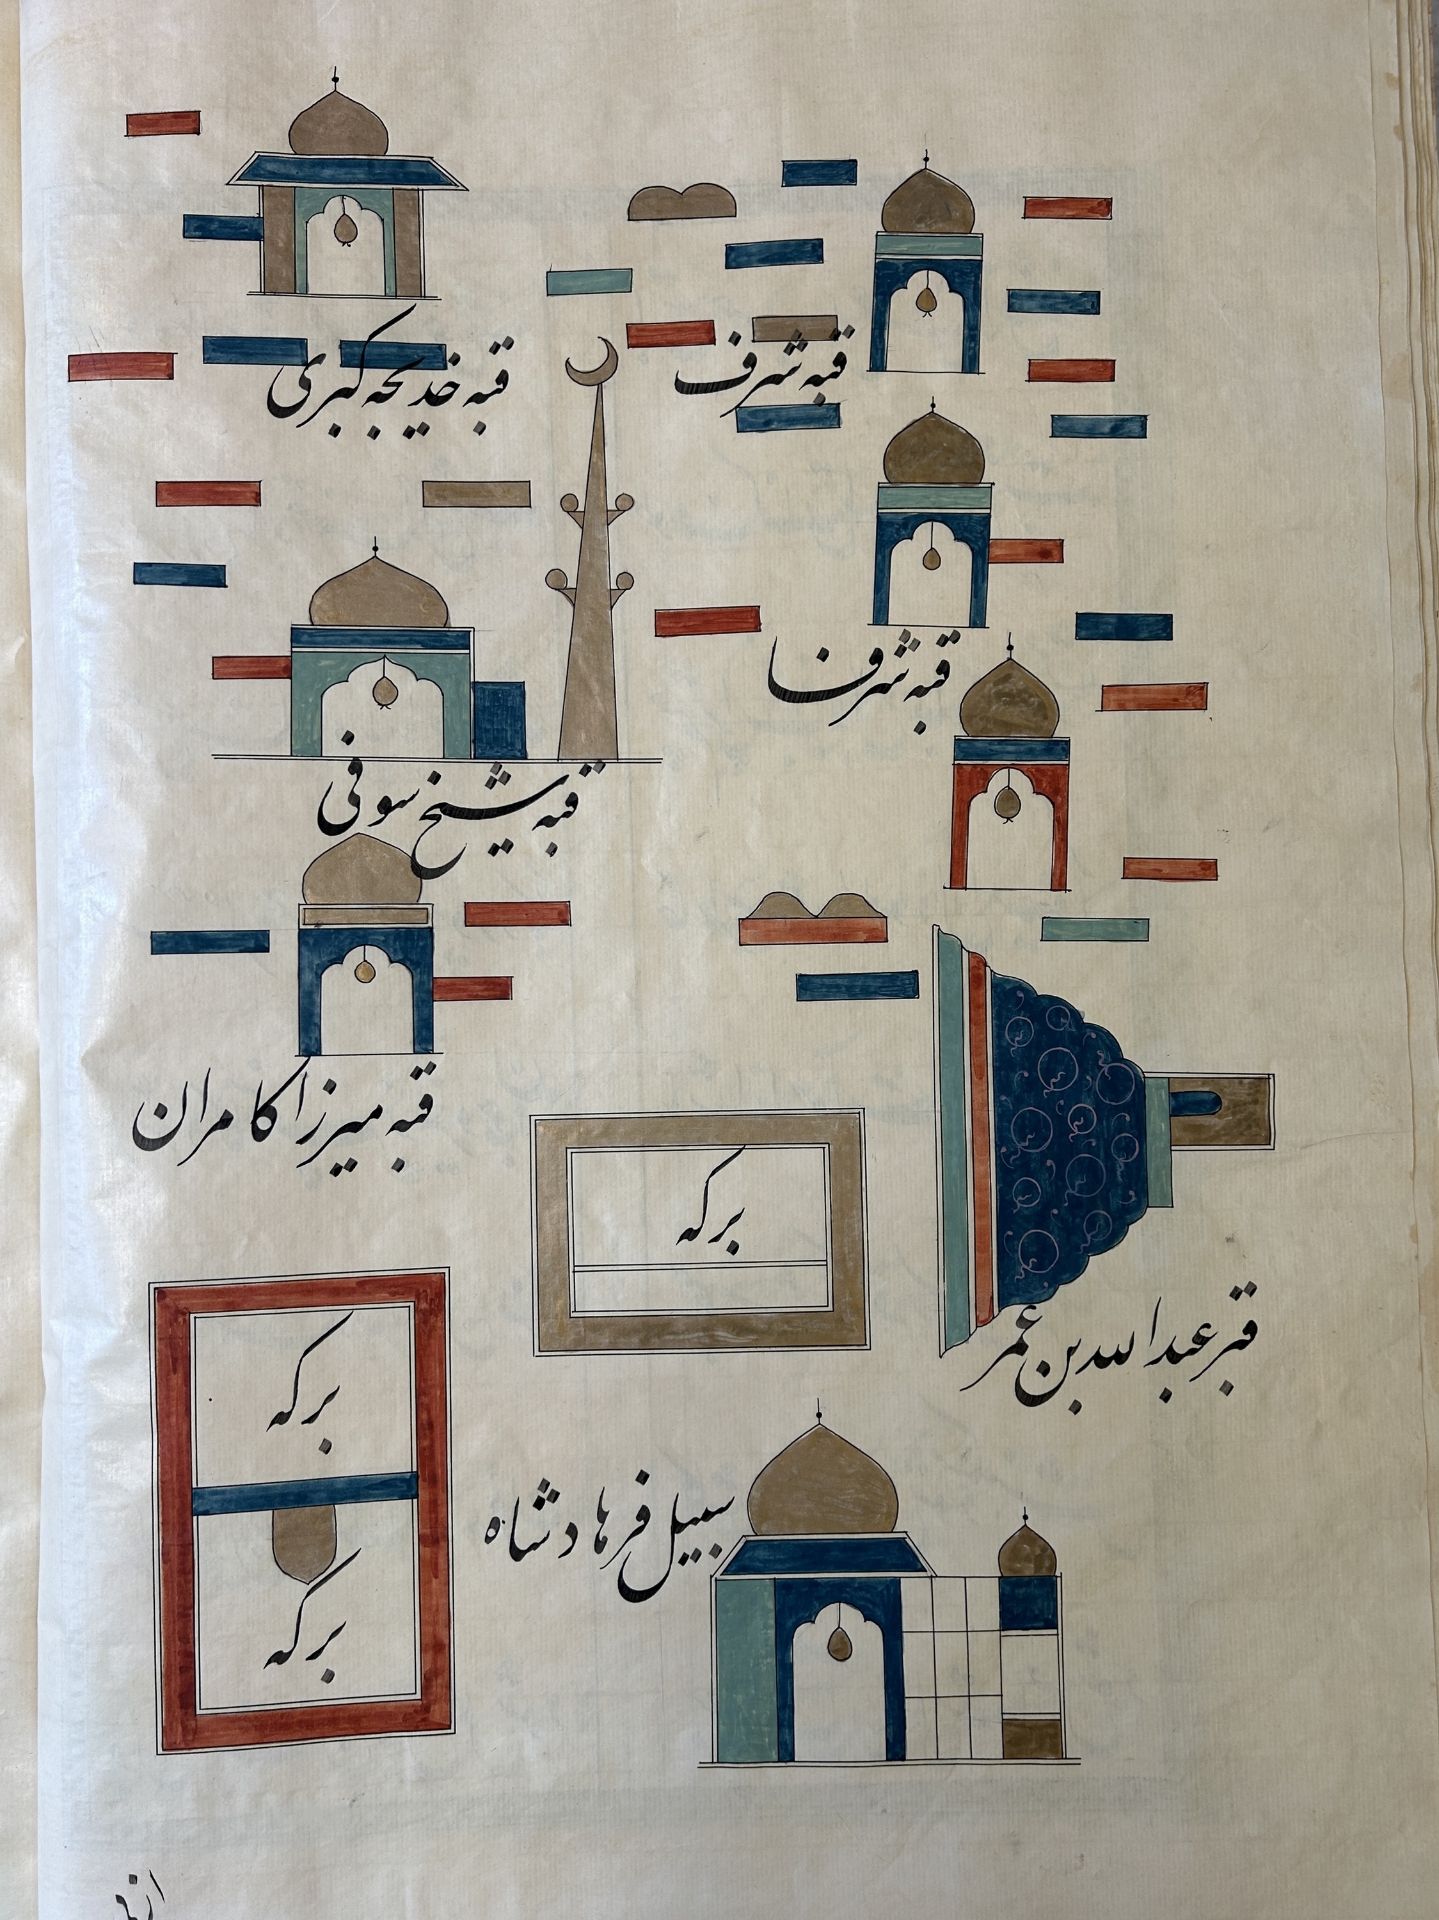 قبه شرف
قبه خدیجه کبری
قبه شرفا
قبه شیخ سوفی
قبه میرزا کامران
برکه
قبر عبدالله بن عمر
برکه
سبیل فرهاد شاه
برکه